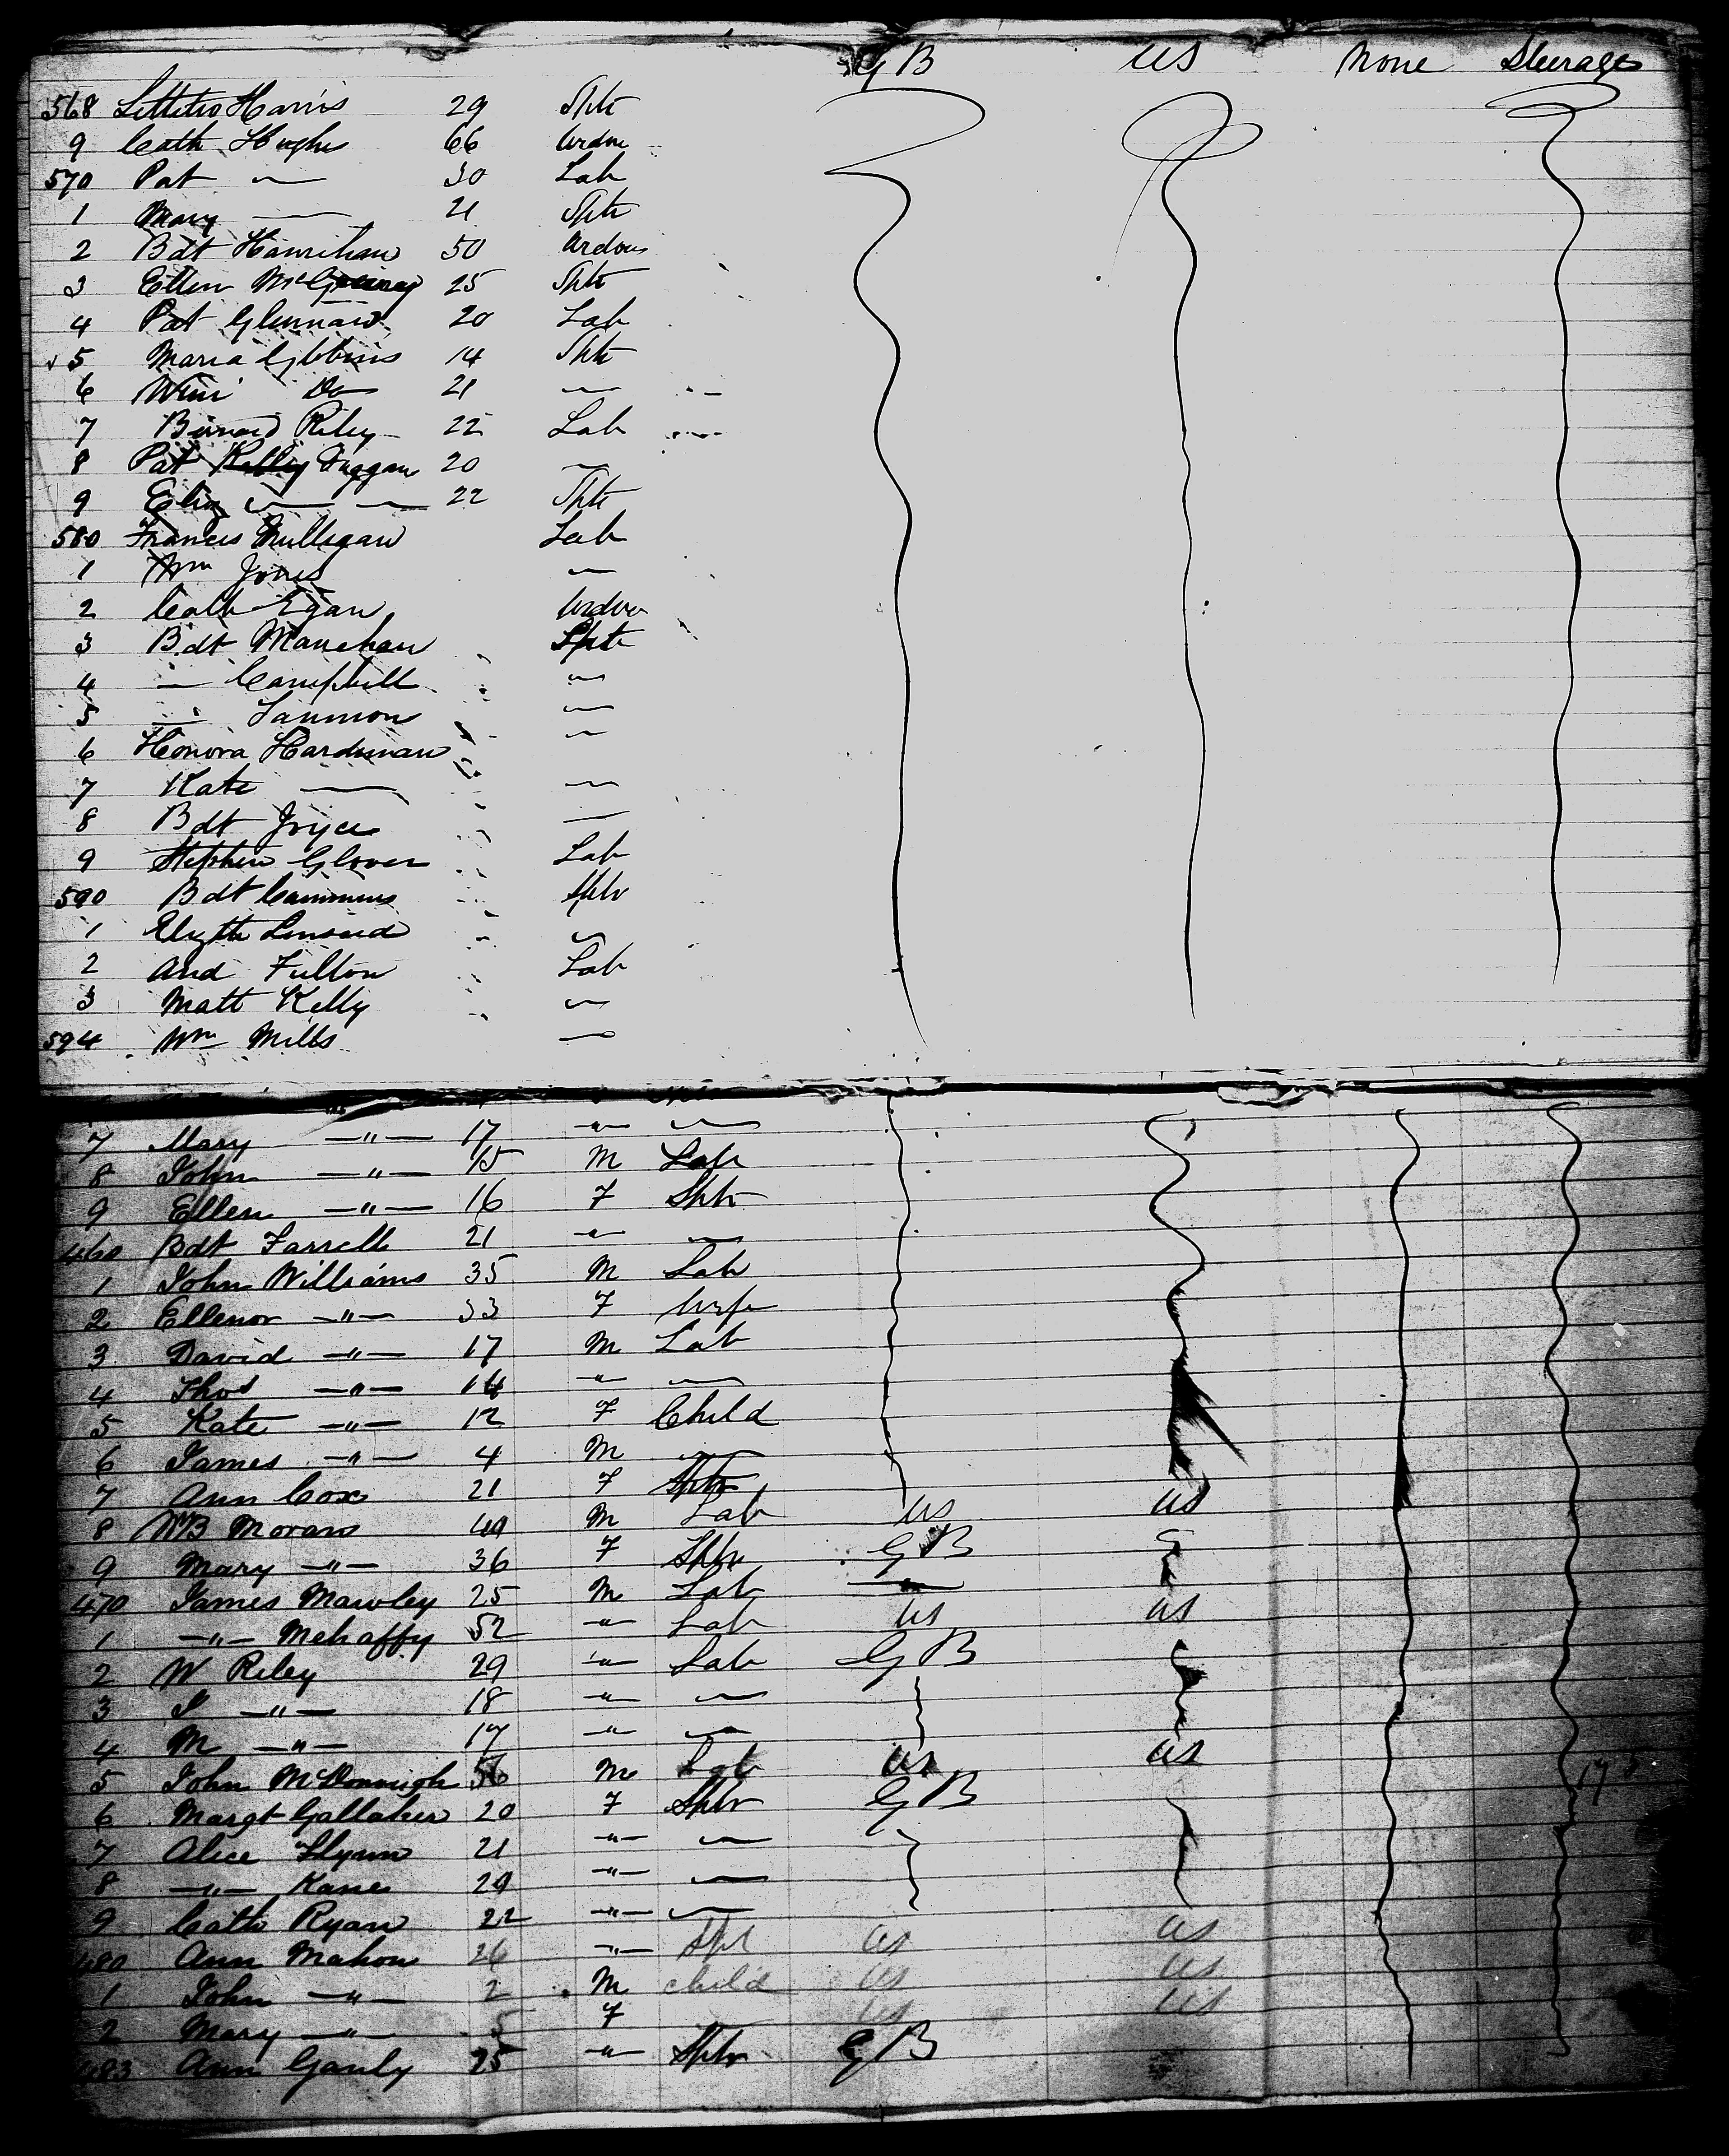 GB US None Steerage
568 Lettitio Harris 29 Sptr
9 Cath Hughs 66 Wrdow
570 Pat " 30 Lab
1 Mary — 21 Sptr
2 Bdt Hanrihan 50 Wrdow
3 Ellen 25 Sptr
4 Pat Glennard 20 Lab
5 Maria Gibbins 14 Sptr
6 Wini Do 21 "
7 Bernard Riley 22 Lab
8 Pat Kelly Duggan 20 "
9 Eliza — 22 Sptr
580 Francis Mulligan Lab
1 Wm Jones "
2 Cath Egan Wrdow
3 Bdt Manehan Sptr
4 — Campbell "
5 — Lammon "
6 Honora Hardiman "
7 Kate — "
8 Bdt Joyce —
9 Stephen Glover Lab
590 Bdt Cummins Sptr
1 Elizth "
2 And Fulton Lab
3 Matt Kelly "
594 Wm Mills —
7 Mary —"— 17 " "
8 John —"— 15 M Lab
9 Ellen —"— 16 F Sptr
460 Bdt Farrell 21 " "
1 John Williams 35 M Lab
2 Ellenor —"— 33 F Wife
3 David —"— 17 M Lab
4 Thos —"— 14 " "
5 Kate —"— 12 F Child
6 James —"— 4 M "
7 Ann Cox 21 F Sptr
8 Moran M Lab US US
9 Mary —"— 36 F Sptr GB
470 James Mawley 25 M Lab —"—
1 —"— Mehaffy 52 " Lab US US
2 W Riley 29 " Lab GB
3 J —"— 18 " "
4 M —"— 17 " "
5 John McDonnigh 56 M Lab US US
6 Margt Gallaher 20 F Sptr GB
7 Alice Flynn 21 " "
8 —"— Kane 29 " "
9 Cath Ryan 22 " "
480 Ann Mahon 26 " Spt US US
1 John —"— 2 M child US US
2 Mary —"— 5 F US US
483 Ann Ganly 25 " Sptr GB